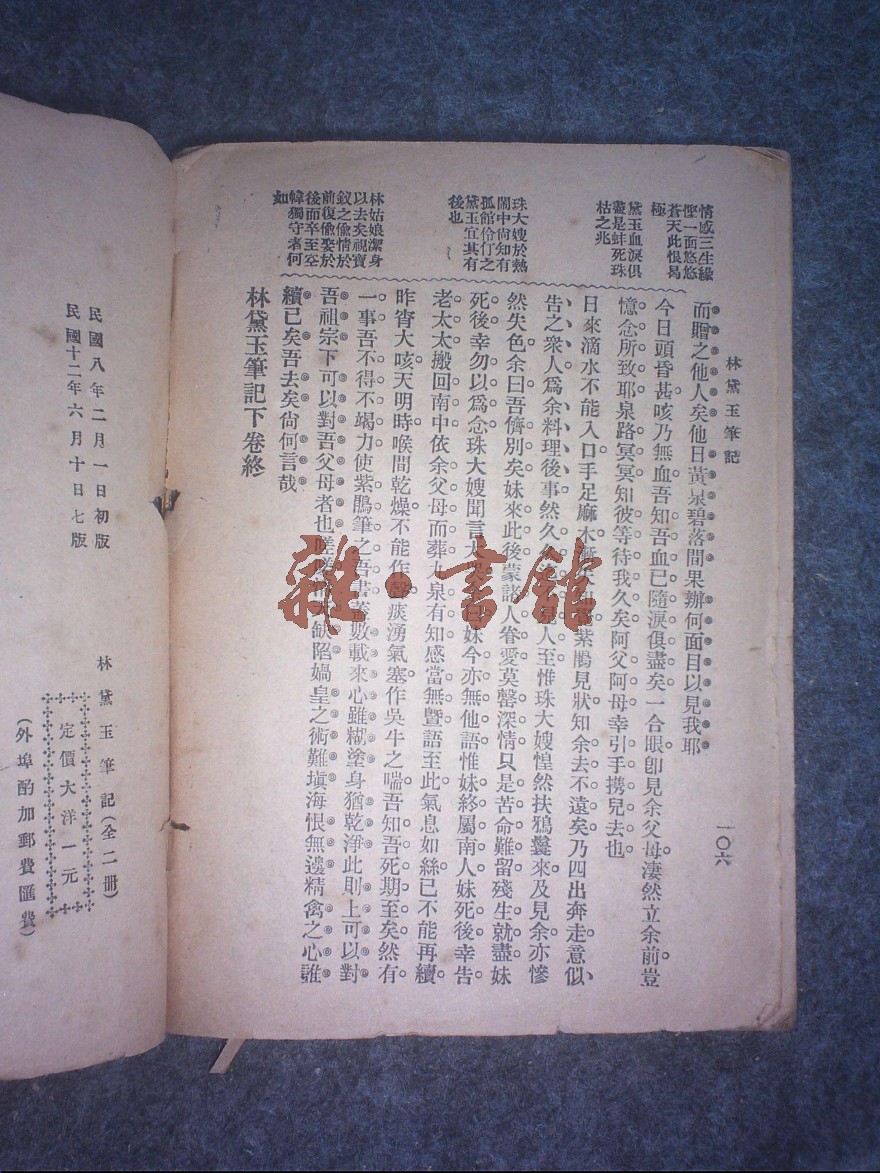 林黛玉筆記
一〇六
情感三生緣
慳一面悠悠
蒼天此恨曷
極
黛玉血淚俱
盡是蚌死珠
枯之兆
珠大嫂於熱
鬧中尙知有
孤館伶仃之
黛玉宜其有
後也
林姑娘潔身
以去矣視寶
釵之偸情於
前復偸娶於
後而卒至空
幃獨守者何
如
而贈之他人矣他日黃泉碧落間果辦何面目以見我耶
今日頭昏甚咳乃無血吾知吾血已隨淚俱盡矣一合眼卽見余父母淒然立余前豈
憶念所致耶泉路冥冥知彼等待我久矣阿父阿母幸引手携兒去也
日來滴水不能入口手足麻木漸紫鵑見狀知余去不遠矣乃四出奔走意似
告之衆人爲余料理後事然久久人至惟珠大嫂惶然扶鴉鬟來及見余亦慘
然失色余曰吾儕別矣妹來此後蒙諸人眷愛莫罄深情只是苦命難留殘生就盡妹
死後幸勿以爲念珠大嫂聞言大哭妹今亦無他語惟妹終屬南人妹死後幸吿
老太太搬回南中依余父母而葬九泉有知感當無曁語至此氣息如絲已不能再續
昨宵大咳天明時喉間乾燥不能作聲痰湧氣塞作吳牛之喘吾知吾死期至矣然有
一事吾不得不竭力使紫鵑筆之吾書蓋數載來心雖糊塗身猶乾淨此則上可以對
吾祖宗下可以對吾父母者也嗟缺陷媧皇之術難塡海恨無邊精禽之心誰
續已矣吾去矣尙何言哉
林黛玉筆記下卷終
民國八年二月一日初版
民國十二年六月十日七版
林黛玉筆記(全二冊)
定價大洋一元
(外埠酌加郵費匯費)
雜·書館